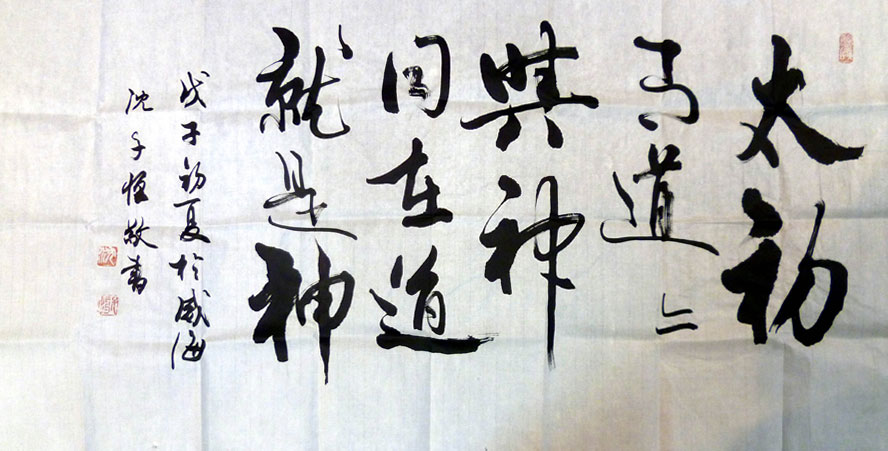 太初
有道々
與神
同在道
就是神
戊子初夏於威海
沈 恒敬書